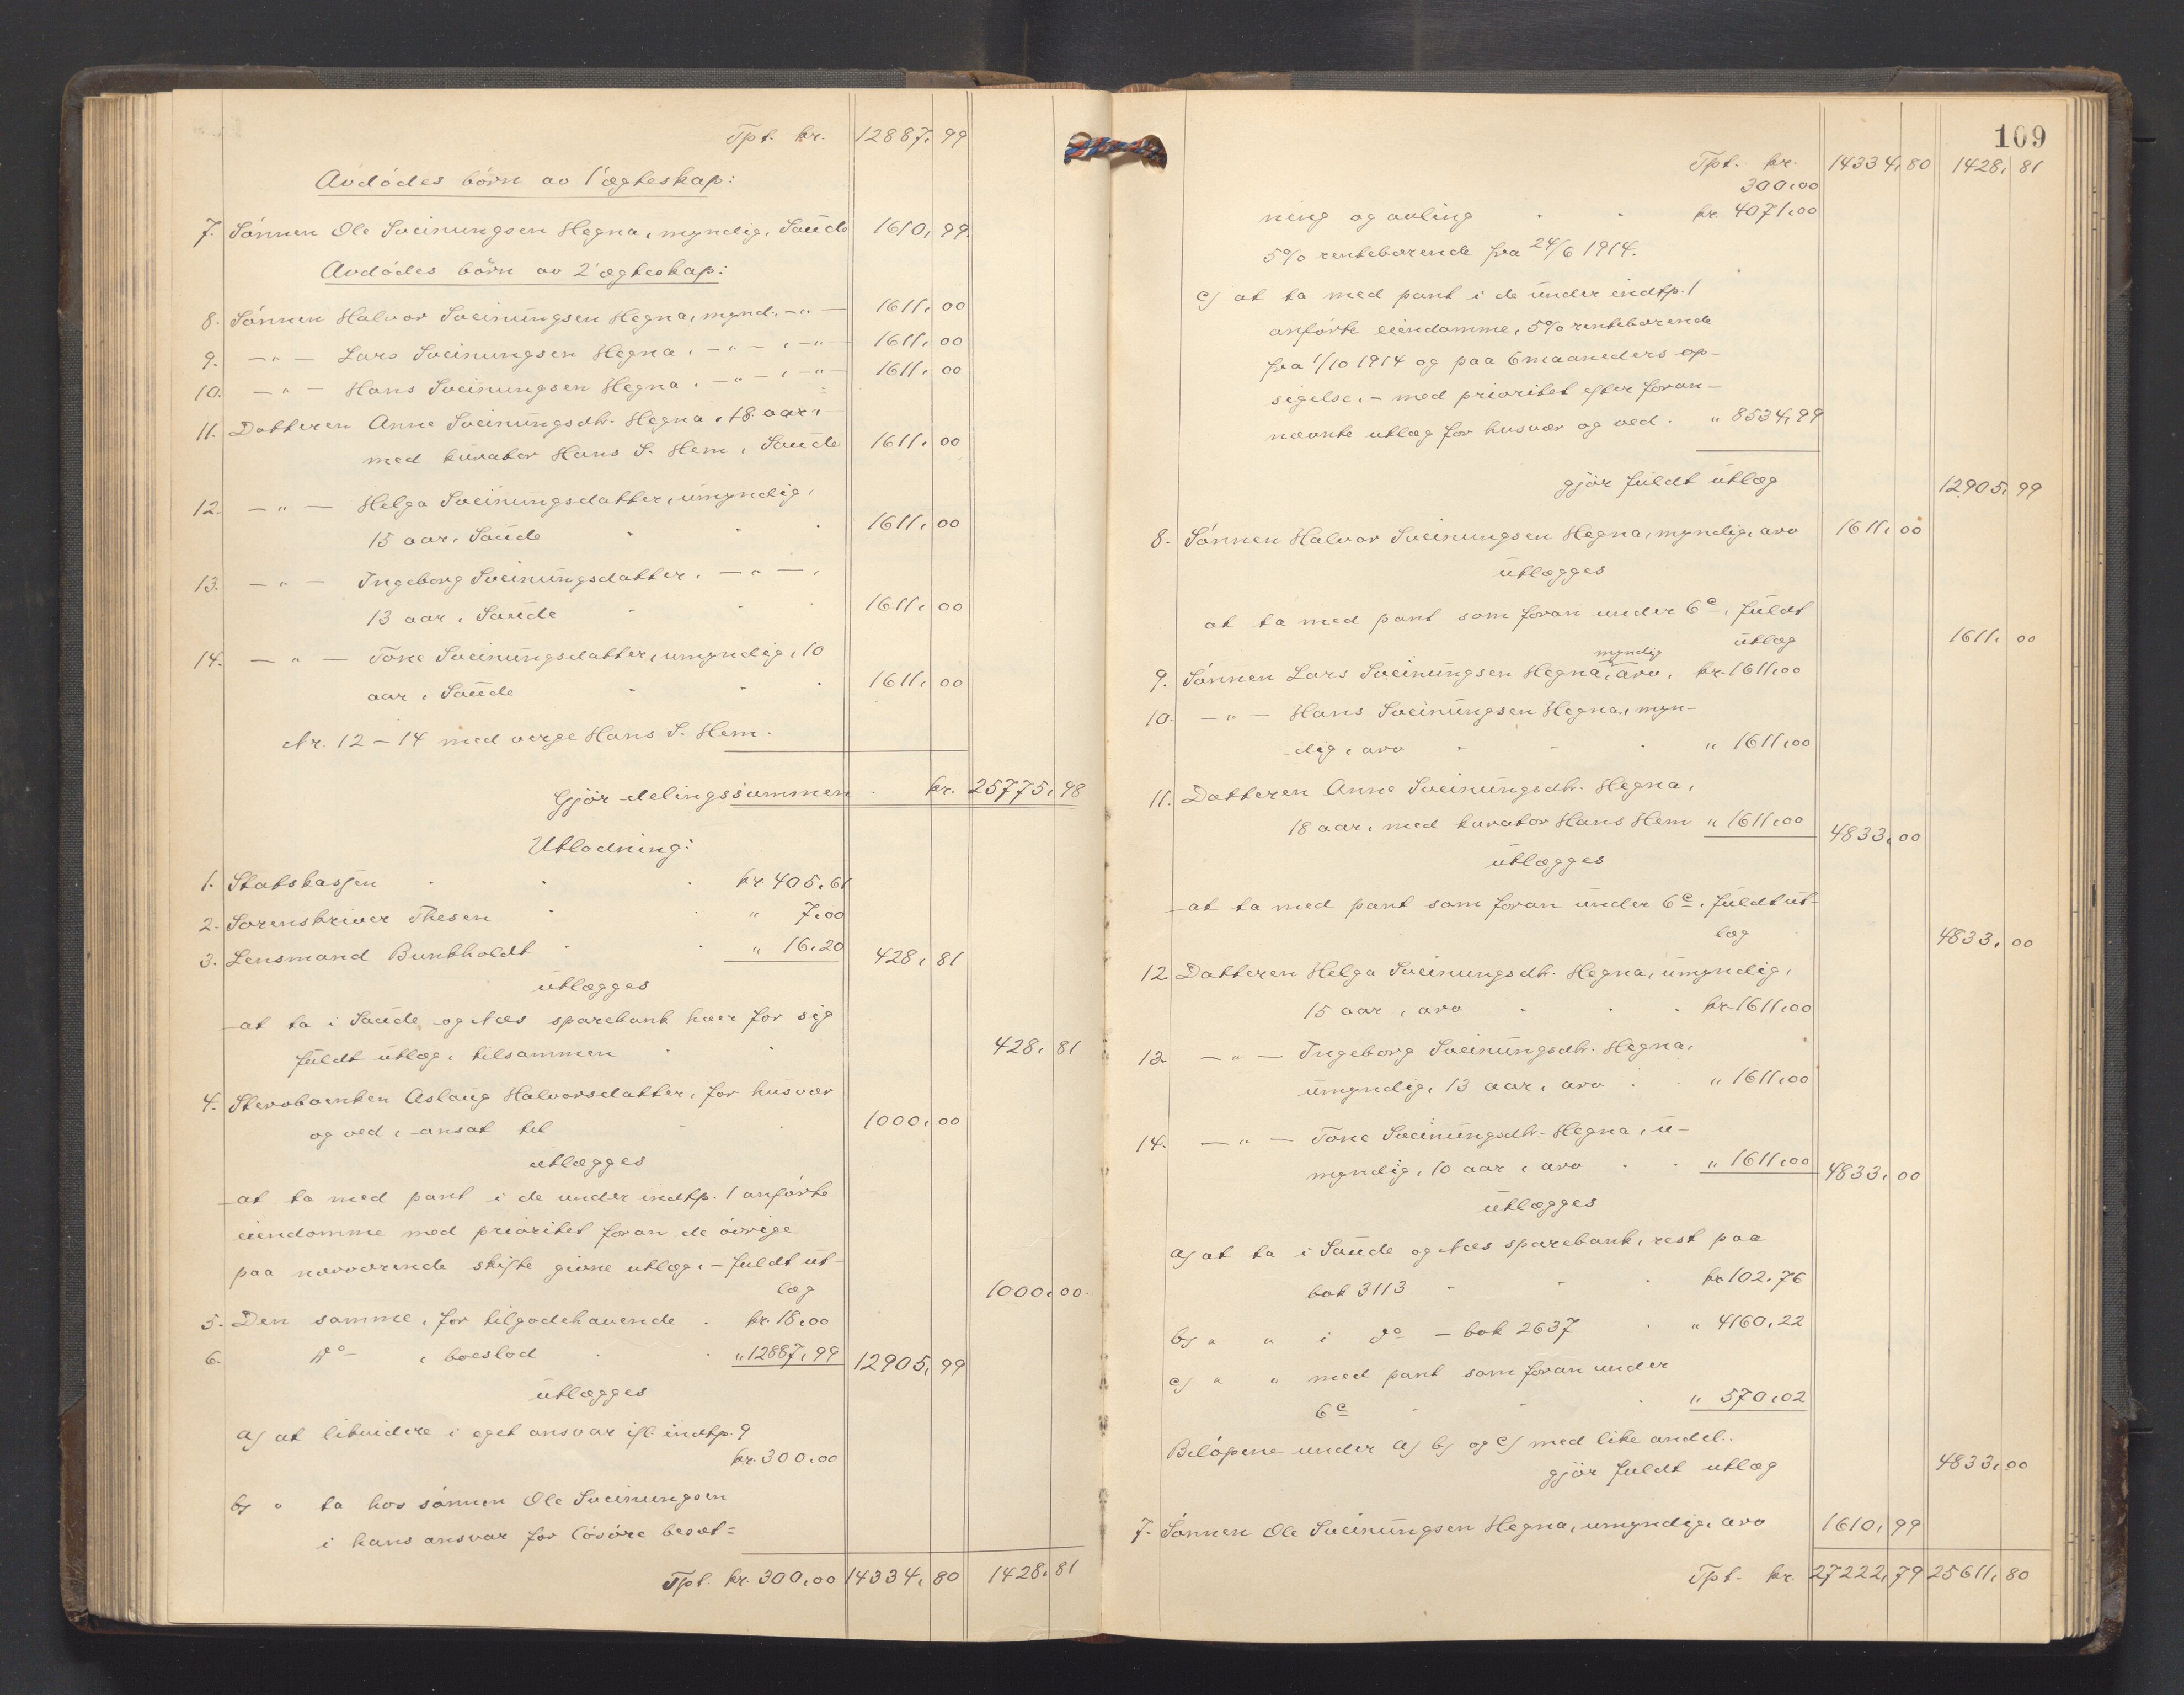 Tpt. kr. 12887,99
Avdödes börn av 1' ægteskap:
7. Sönnen Ole Sveinungsen Hegna, myndig, Saude 1610,99
Avdödes börn av 2' ægteskap:
8. Sönnen Halvor Sveinungsen Hegna, mynd., –„– 1611,00
9. –„– Lars Sveinungsen Hegna, –„–, –„– 1611,00
10. –„– Hans Sveinungsen Hegna, –„–, –„– 1611,00
11. Datteren Anne Sveinungsdtr. Hegna, 18 aar,
med kurator Hans S. Hem, Saude 1611,00
12. –„– Helga Sveinungsdatter, umyndig,
15 aar, Saude 1611,00
13. –„– Ingeborg Sveinungsdatter, –„–,
13 aar, Saude 1611,00
14. –„– Tone Sveinungsdatter, umyndig, 10
aar, Saude 1611,00
Nr. 12–14 med verge Hans S. Hem.
Gjör delingssummen kr. 25775,98
Utlodning:
1. Statskassen kr 405,61
2. Sorenskriver Thesen „ 7,00
3. Lensmand Bunkholdt „ 16,20 428,81
utlægges
at ta i Saude og Næs sparebank hver for sig
fuldt utlæg, tilsammen 428,81
4. Stervboenken Aslaug Halvorsdatter, for husvær
og ved, ansat til 1000,00
utlægges
at ta med pant i de under indtp. 1 anförte
eiendomme med prioritet foran de övrige
paa nærværende skifte givne utlæg, – fuldt ut-
læg 1000,00
5. Den samme, for tilgodehavende kr. 18,00
6. Do , boeslod „ 12887,99 12905,99
utlægges
a) at likvidere i eget ansvar ifl. indtp. 9
kr. 300,00
b) „ ta hos sönnen Ole Sveinungsen
i hans ansvar for lösöre besæt=
Tpt. kr. 300,00 14334,80 1428,81
109
Tpt. kr. 14334,80 1428,81
300,00
ning og avling kr. 4071,00
5% rentebærende fra 24/6 1914.
c) at ta med pant i de under indtp. 1
anförte eiendomme, 5% rentebærende
fra 1/10 1914 og paa 6 maaneders op-
sigelse, – med prioritet efter foran-
nævnte utlæg for husvær og ved. „ 8534,99
gjör fuldt utlæg 12905,99
8. Sönnen Halvor Sveinungsen Hegna, myndig, arv 1611,00
utlægges
at ta med pant som foran under 6c, fuldt
utlæg 1611,00
myndig
9. Sönnen Lars Sveinungsen Hegna, arv, kr. 1611,00
10. –„– Hans Sveinungsen Hegna, myn-
dig, arv „ 1611,00
11. Datteren Anne Sveinungsdtr. Hegna,
18 aar, med kurator Hans Hem „ 1611,00 4833,00
utlægges
at ta med pant som foran under 6c, fuldt ut-
læg 4833,00
12. Datteren Helga Sveinungsdtr. Hegna, umyndig,
15 aar, arv kr. 1611,00
13. –„– Ingeborg Sveinungsdtr. Hegna,
umyndig, 13 aar, arv „ 1611,00
14. –„– Tone Sveinungsdtr. Hegna, u-
myndig, 10 aar, arv „ 1611,00 4833,00
utlægges
a) at ta i Saude og Næs sparebank, rest paa
bok 3113 kr 102,76
b) „ „ i do – bok 2637 „ 4160,22
c) „ „ med pant som foran under
6c „ 570,02
Belöpene under a) b) og c) med like andel.
gjör fuldt utlæg 4833,00
7. Sönnen Ole Sveinungsen Hegna, umyndig, arv 1610,99
Tpt. kr. 27222,79 25611,80